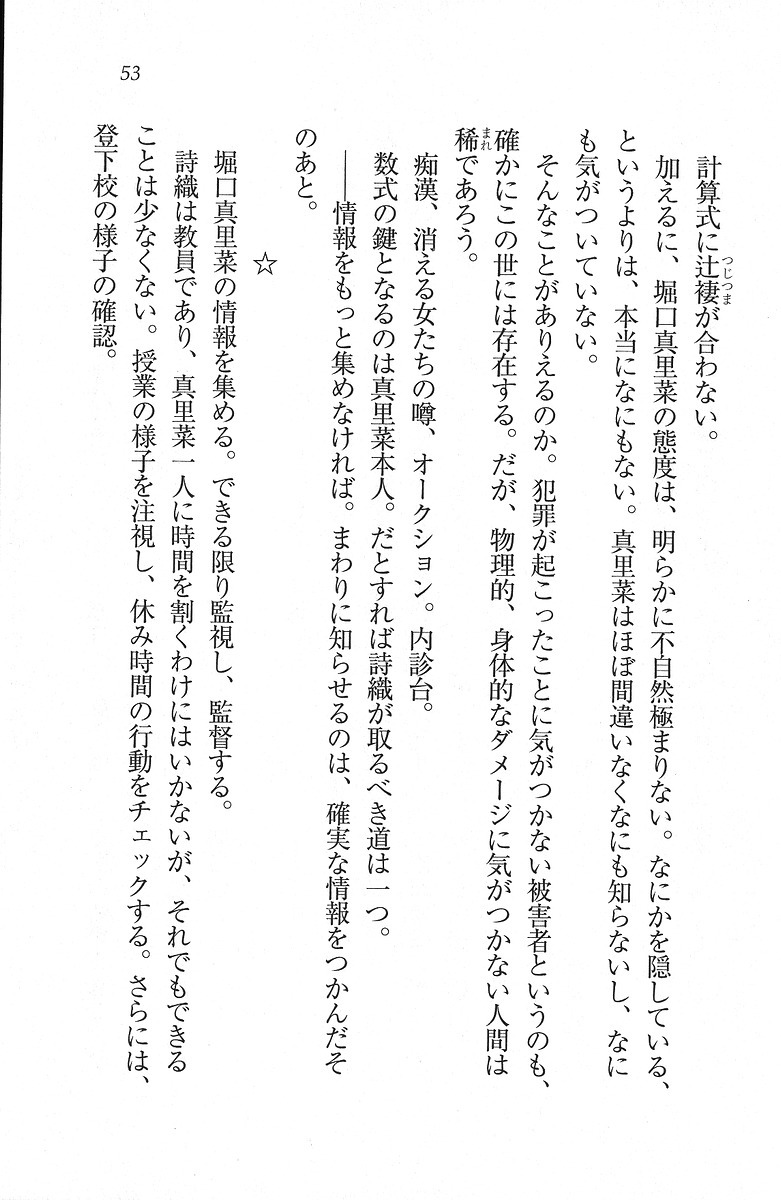 53
計算式に辻褄が合わない。
加えるに、堀口真里菜の態度は、明らかに不自然極まりない。なにかを隠している、
というよりは、本当になにもない。真里菜はほぼ間違いなくなにも知らないし、なに
も気がついていない。
そんなことがありえるのか。犯罪が起こったことに気がつかない被害者というのも、
確かにこの世には存在する。だが、物理的、身体的なダメージに気がつかない人間は
稀であろう。
痴漢、消える女たちの噂、オークション。内診台。
数式の鍵となるのは真里菜本人。だとすれば詩織が取るべき道は一つ。
――情報をもっと集めなければ。まわりに知らせるのは、確実な情報をつかんだそ
のあと。
☆
堀口真里菜の情報を集める。できる限り監視し、監督する。
詩織は教員であり、真里菜一人に時間を割くわけにはいかないが、それでもできる
ことは少なくない。授業の様子を注視し、休み時間の行動をチェックする。さらには、
登下校の様子の確認。
つじつま
まれ